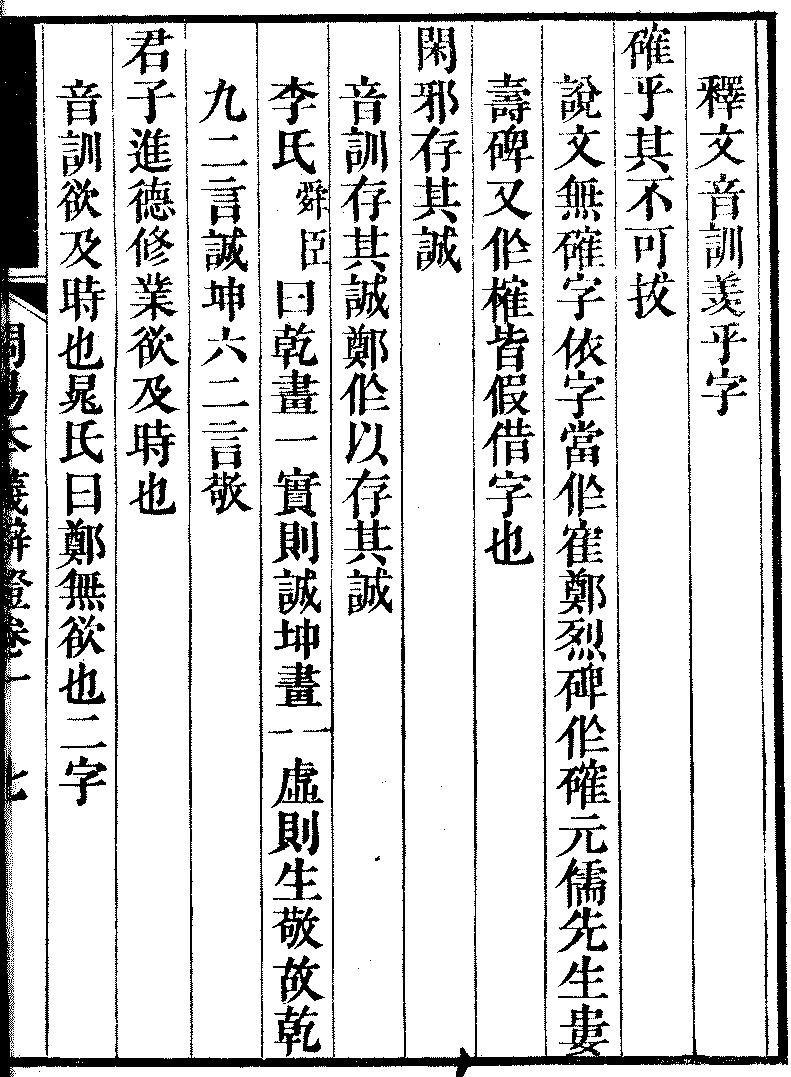 釋文音訓羙乎字
確乎其不可拔
說文無確字依字當作寉鄭烈碑作確元儒先生婁
壽碑又作榷皆假借字也
閑邪存其誠
音訓存其誠鄭作以存其誠
李氏舜臣曰乾畫一實則誠坤畫⚋虛則生敬故乾
九二言誠坤六二言敬
君子進德修業欲及時也
音訓欲及時也晁氏曰鄭無欲也二字
周易本義辨證卷一 七